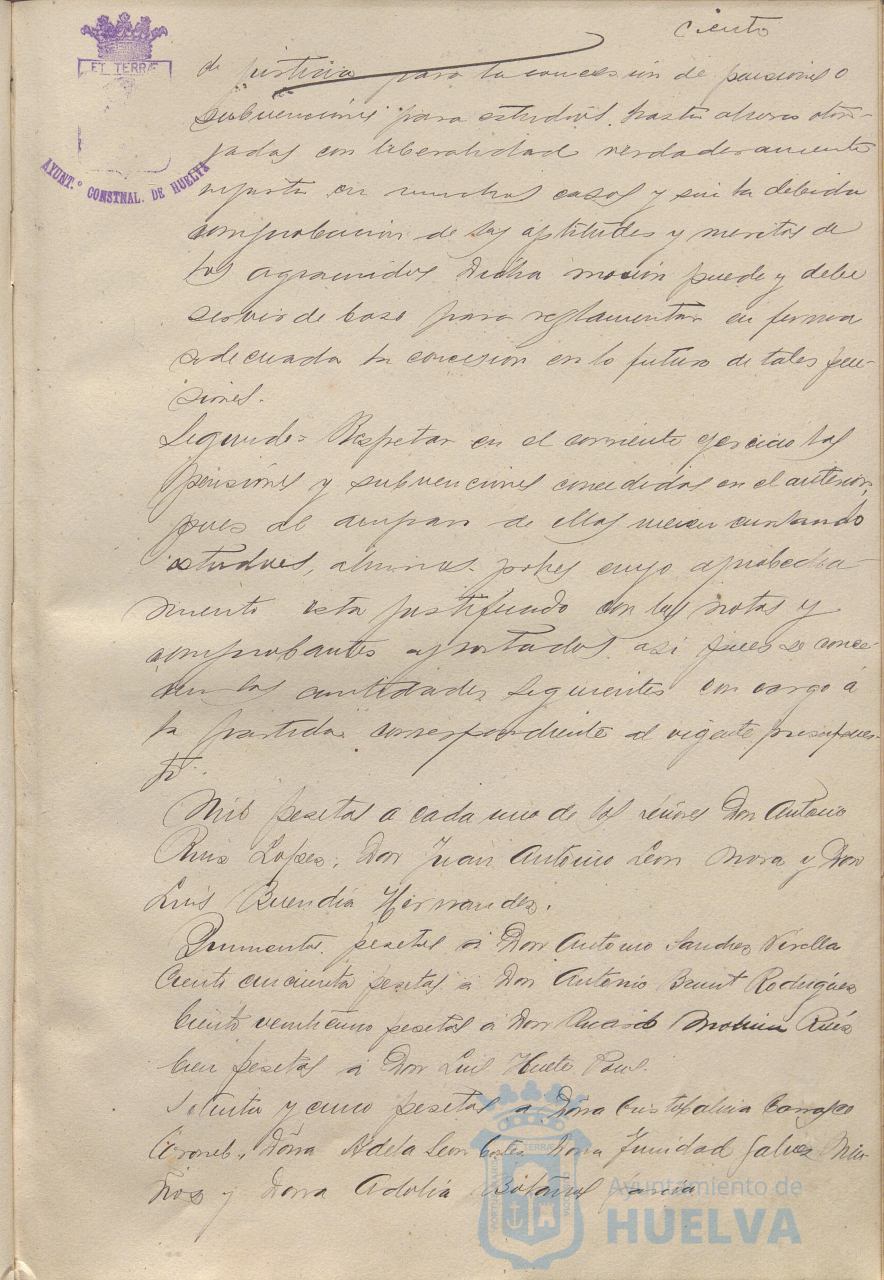 Ciento
ET TERRÆ
AYUNT.º CONSTNAL. DE HUELVA
de justicia para la concesión de pensiones o
subvenciones para estudios, hasta ahora otor-
gadas con liberalidad verdaderamente
injusta en muchos casos y sin la debida
comprobacion de las aptitudes y meritos de
los agraciados Dicha moción puede y debe
servir de base para reglamentar en forma
adecuada la concesion en lo futuro de tales pen-
siones.
Segundo = Respetar en el corriente ejercicio las
pensiones y subvenciones concedidas en el anterior,
pues al amparo de ellas vienen cursando
estudios, alumnos pobres cuyo aprovecha-
miento esta justificado con las notas y
comprobantes aportados. asi pues se conce-
den las cantidades siguientes con cargo á
la partida correspondiente al vigente presupues-
to.
Mil pesetas a cada uno de los señores Don Antonio
Ruiz Lopez, Don Juan Antonio Leon Mora y Don
Luis Buendía Hernandez.
Quinientas pesetas a Don Antonio Sanchez
Ciento cincuenta pesetas a Don Antonio Rodriguez
Ciento pesetas a Don Molina Ruiz
Cien pesetas a Don Luis Huete
Setenta y cinco pesetas a Doña Carrasco
Coronel, Doña Adela Leon Cortes Doña Trinidad Galvez
y Doña Adolia García
Ayuntamiento de
HUELVA